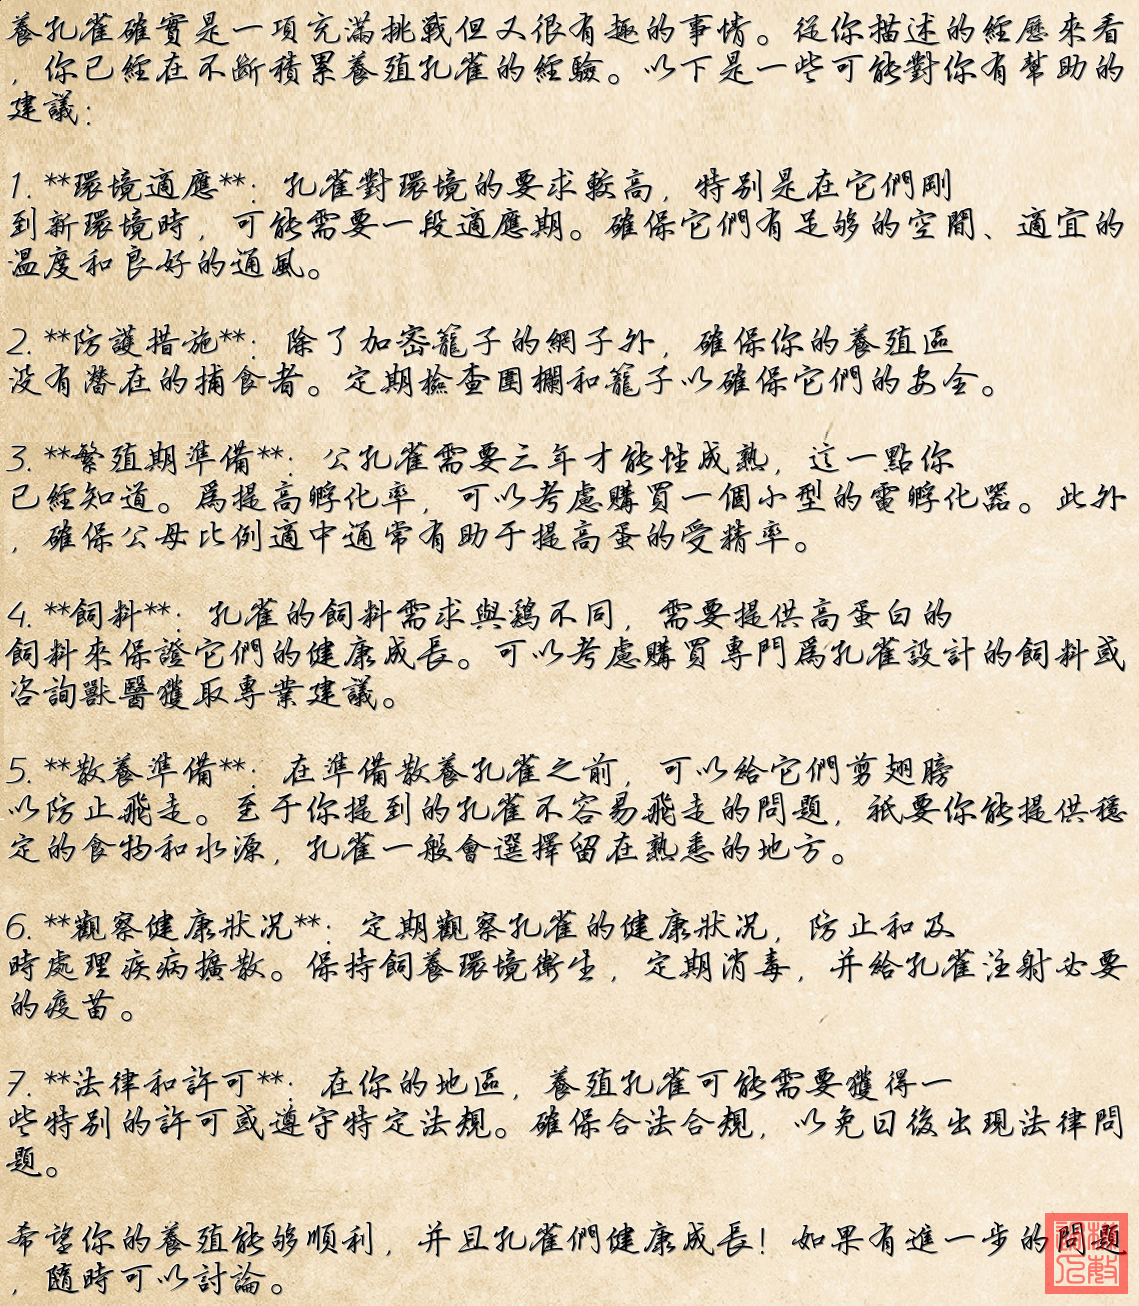 養孔雀確實是一項充滿挑戰但又很有趣的事情。從你描述的經歷來看
，你已經在不斷積累養殖孔雀的經驗。以下是一些可能對你有幫助的
建議：
1. **環境適應**：孔雀對環境的要求較高，特别是在它們剛
到新環境時，可能需要一段適應期。確保它們有足够的空間、適宜的
温度和良好的通風。
2. **防護措施**：除了加密籠子的網子外，確保你的養殖區
没有潛在的捕食者。定期檢查圍欄和籠子以確保它們的安全。
3. **繁殖期準備**：公孔雀需要三年才能性成熟，這一點你
已經知道。爲提高孵化率，可以考慮購買一個小型的電孵化器。此外
，確保公母比例適中通常有助于提高蛋的受精率。
4. **飼料**：孔雀的飼料需求與鷄不同，需要提供高蛋白的
飼料來保證它們的健康成長。可以考慮購買專門爲孔雀設計的飼料或
咨詢獸醫獲取專業建議。
5. **散養準備**：在準備散養孔雀之前，可以給它們剪翅膀
以防止飛走。至于你提到的孔雀不容易飛走的問題，祇要你能提供穩
定的食物和水源，孔雀一般會選擇留在熟悉的地方。
6. **觀察健康狀况**：定期觀察孔雀的健康狀况，防止和及
時處理疾病擴散。保持飼養環境衛生，定期消毒，并給孔雀注射必要
的疫苗。
7. **法律和許可**：在你的地區，養殖孔雀可能需要獲得一
些特别的許可或遵守特定法規。確保合法合規，以免日後出現法律問
題。
希望你的養殖能够順利，并且孔雀們健康成長！如果有進一步的問題
，隨時可以討論。